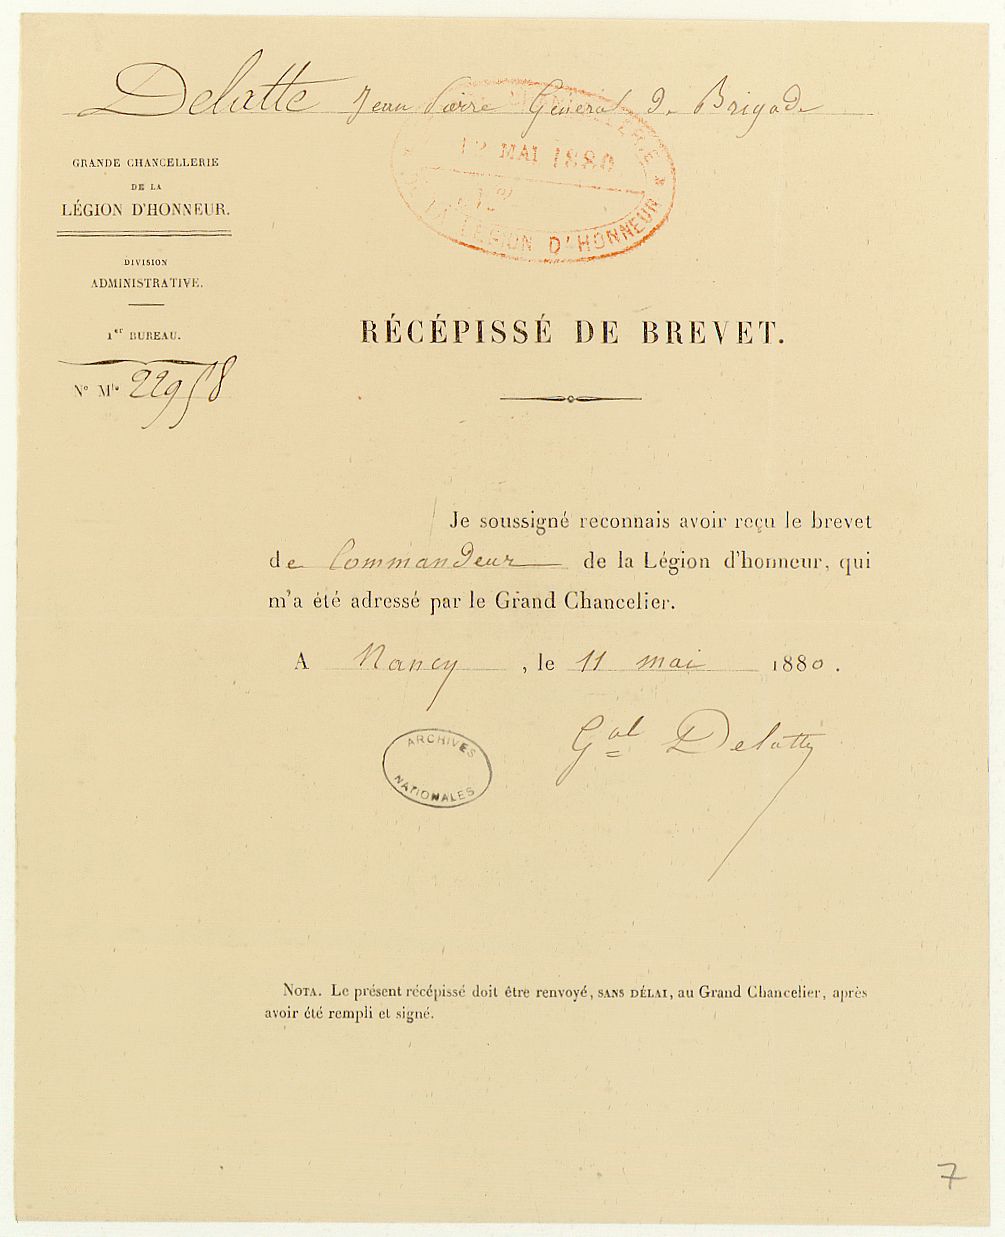 Delatte Jean Pierre Général de Brigade
GRANDE CHANCELLERIE
DE LA
LÉGION D'HONNEUR.
DIVISION
ADMINISTRATIVE.
1er BUREAU.
N° Mle 22958
12 MAI 1880
LA LÉGION D'HONNEUR
RÉCÉPISSÉ DE BREVET.
Je soussigné reconnais avoir reçu le brevet
de Commandeur de la Légion d'honneur, qui
m'a été adressé par le Grand Chancelier.
A Nancy, le 11 mai 1880.
Gal Delatte
ARCHIVES
NATIONALES
NOTA. Le présent récépissé doit être renvoyé, SANS DÉLAI, au Grand Chancelier, après
avoir été rempli et signé.
7